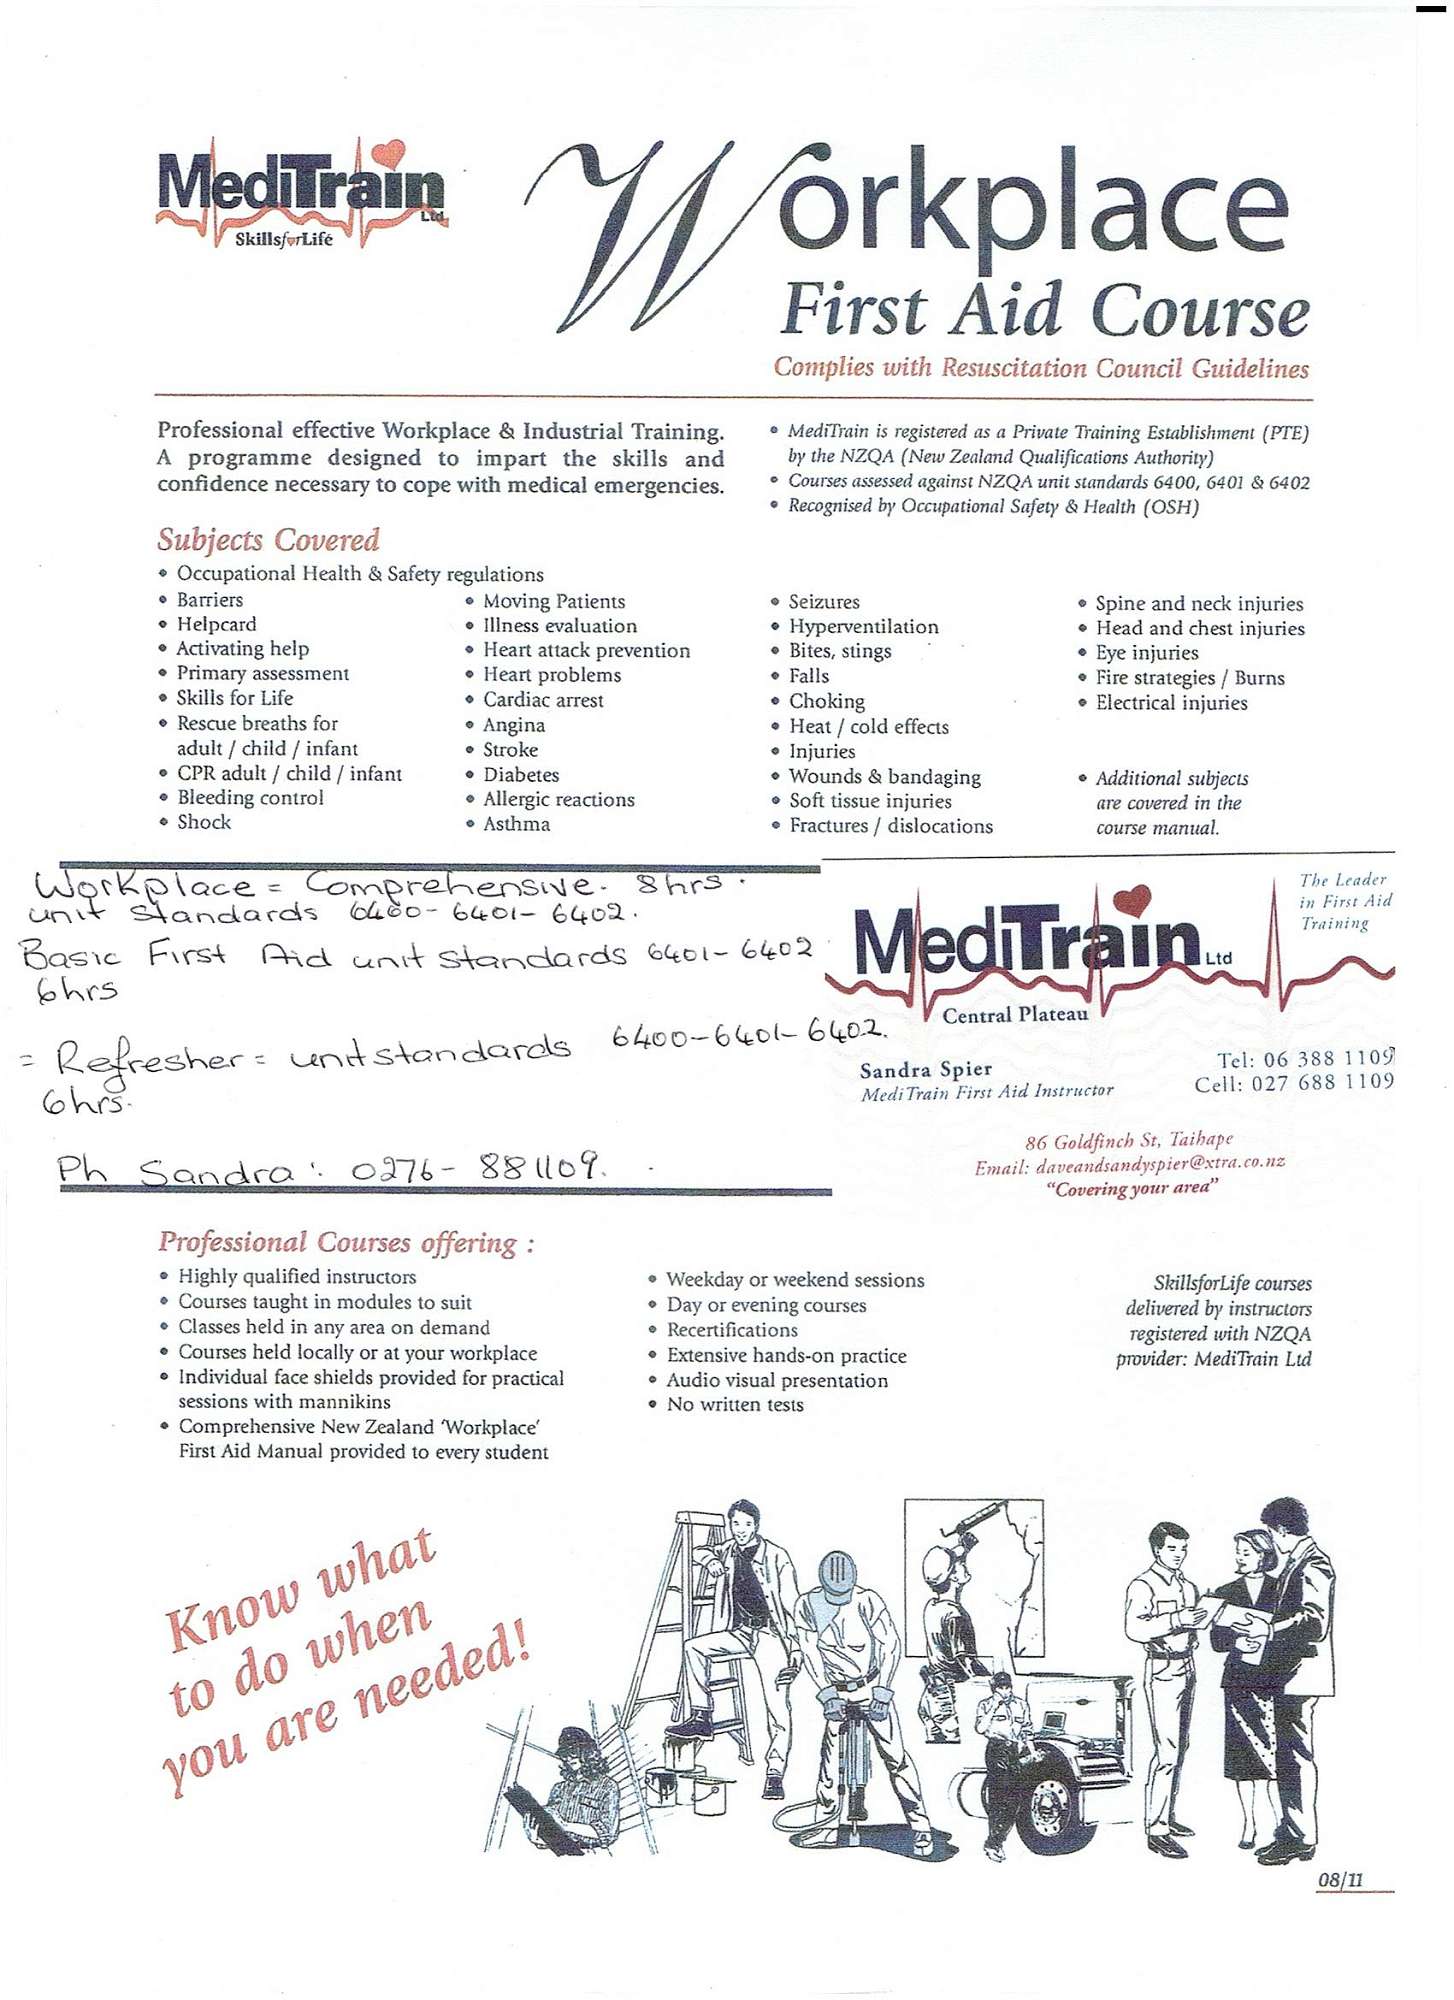 MediTrain Ltd
SkillsforLife
Workplace
First Aid Course
Complies with Resuscitation Council Guidelines
Professional effective Workplace & Industrial Training.
A programme designed to impart the skills and
confidence necessary to cope with medical emergencies.
• MediTrain is registered as a Private Training Establishment (PTE)
by the NZQA (New Zealand Qualifications Authority)
• Courses assessed against NZQA unit standards 6400, 6401 & 6402
• Recognised by Occupational Safety & Health (OSH)
Subjects Covered
• Occupational Health & Safety regulations
• Barriers
• Helpcard
• Activating help
• Primary assessment
• Skills for Life
• Rescue breaths for
adult / child / infant
• CPR adult / child / infant
• Bleeding control
• Shock
• Moving Patients
• Illness evaluation
• Heart attack prevention
• Heart problems
• Cardiac arrest
• Angina
• Stroke
• Diabetes
• Allergic reactions
• Asthma
• Seizures
• Hyperventilation
• Bites, stings
• Falls
• Choking
• Heat / cold effects
• Injuries
• Wounds & bandaging
• Soft tissue injuries
• Fractures / dislocations
• Spine and neck injuries
• Head and chest injuries
• Eye injuries
• Fire strategies / Burns
• Electrical injuries
• Additional subjects
are covered in the
course manual.
Workplace = Comprehensive. 8hrs.
unit standards 6400-6401-6402.
Basic First Aid unit standards 6401-6402
6hrs
= Refresher = unit standards 6400-6401-6402.
6hrs.
Ph Sandra: 0276-881109.
The Leader
in First Aid
Training
MediTrain Ltd
Central Plateau
Sandra Spier
MediTrain First Aid Instructor
Tel: 06 388 1109
Cell: 027 688 1109
86 Goldfinch St, Taihape
Email: daveandsandyspier@xtra.co.nz
"Covering your area"
Professional Courses offering :
• Highly qualified instructors
• Courses taught in modules to suit
• Classes held in any area on demand
• Courses held locally or at your workplace
• Individual face shields provided for practical
sessions with mannikins
• Comprehensive New Zealand 'Workplace'
First Aid Manual provided to every student
• Weekday or weekend sessions
• Day or evening courses
• Recertifications
• Extensive hands-on practice
• Audio visual presentation
• No written tests
SkillsforLife courses
delivered by instructors
registered with NZQA
provider: MediTrain Ltd
Know what
to do when
you are needed!
08/11